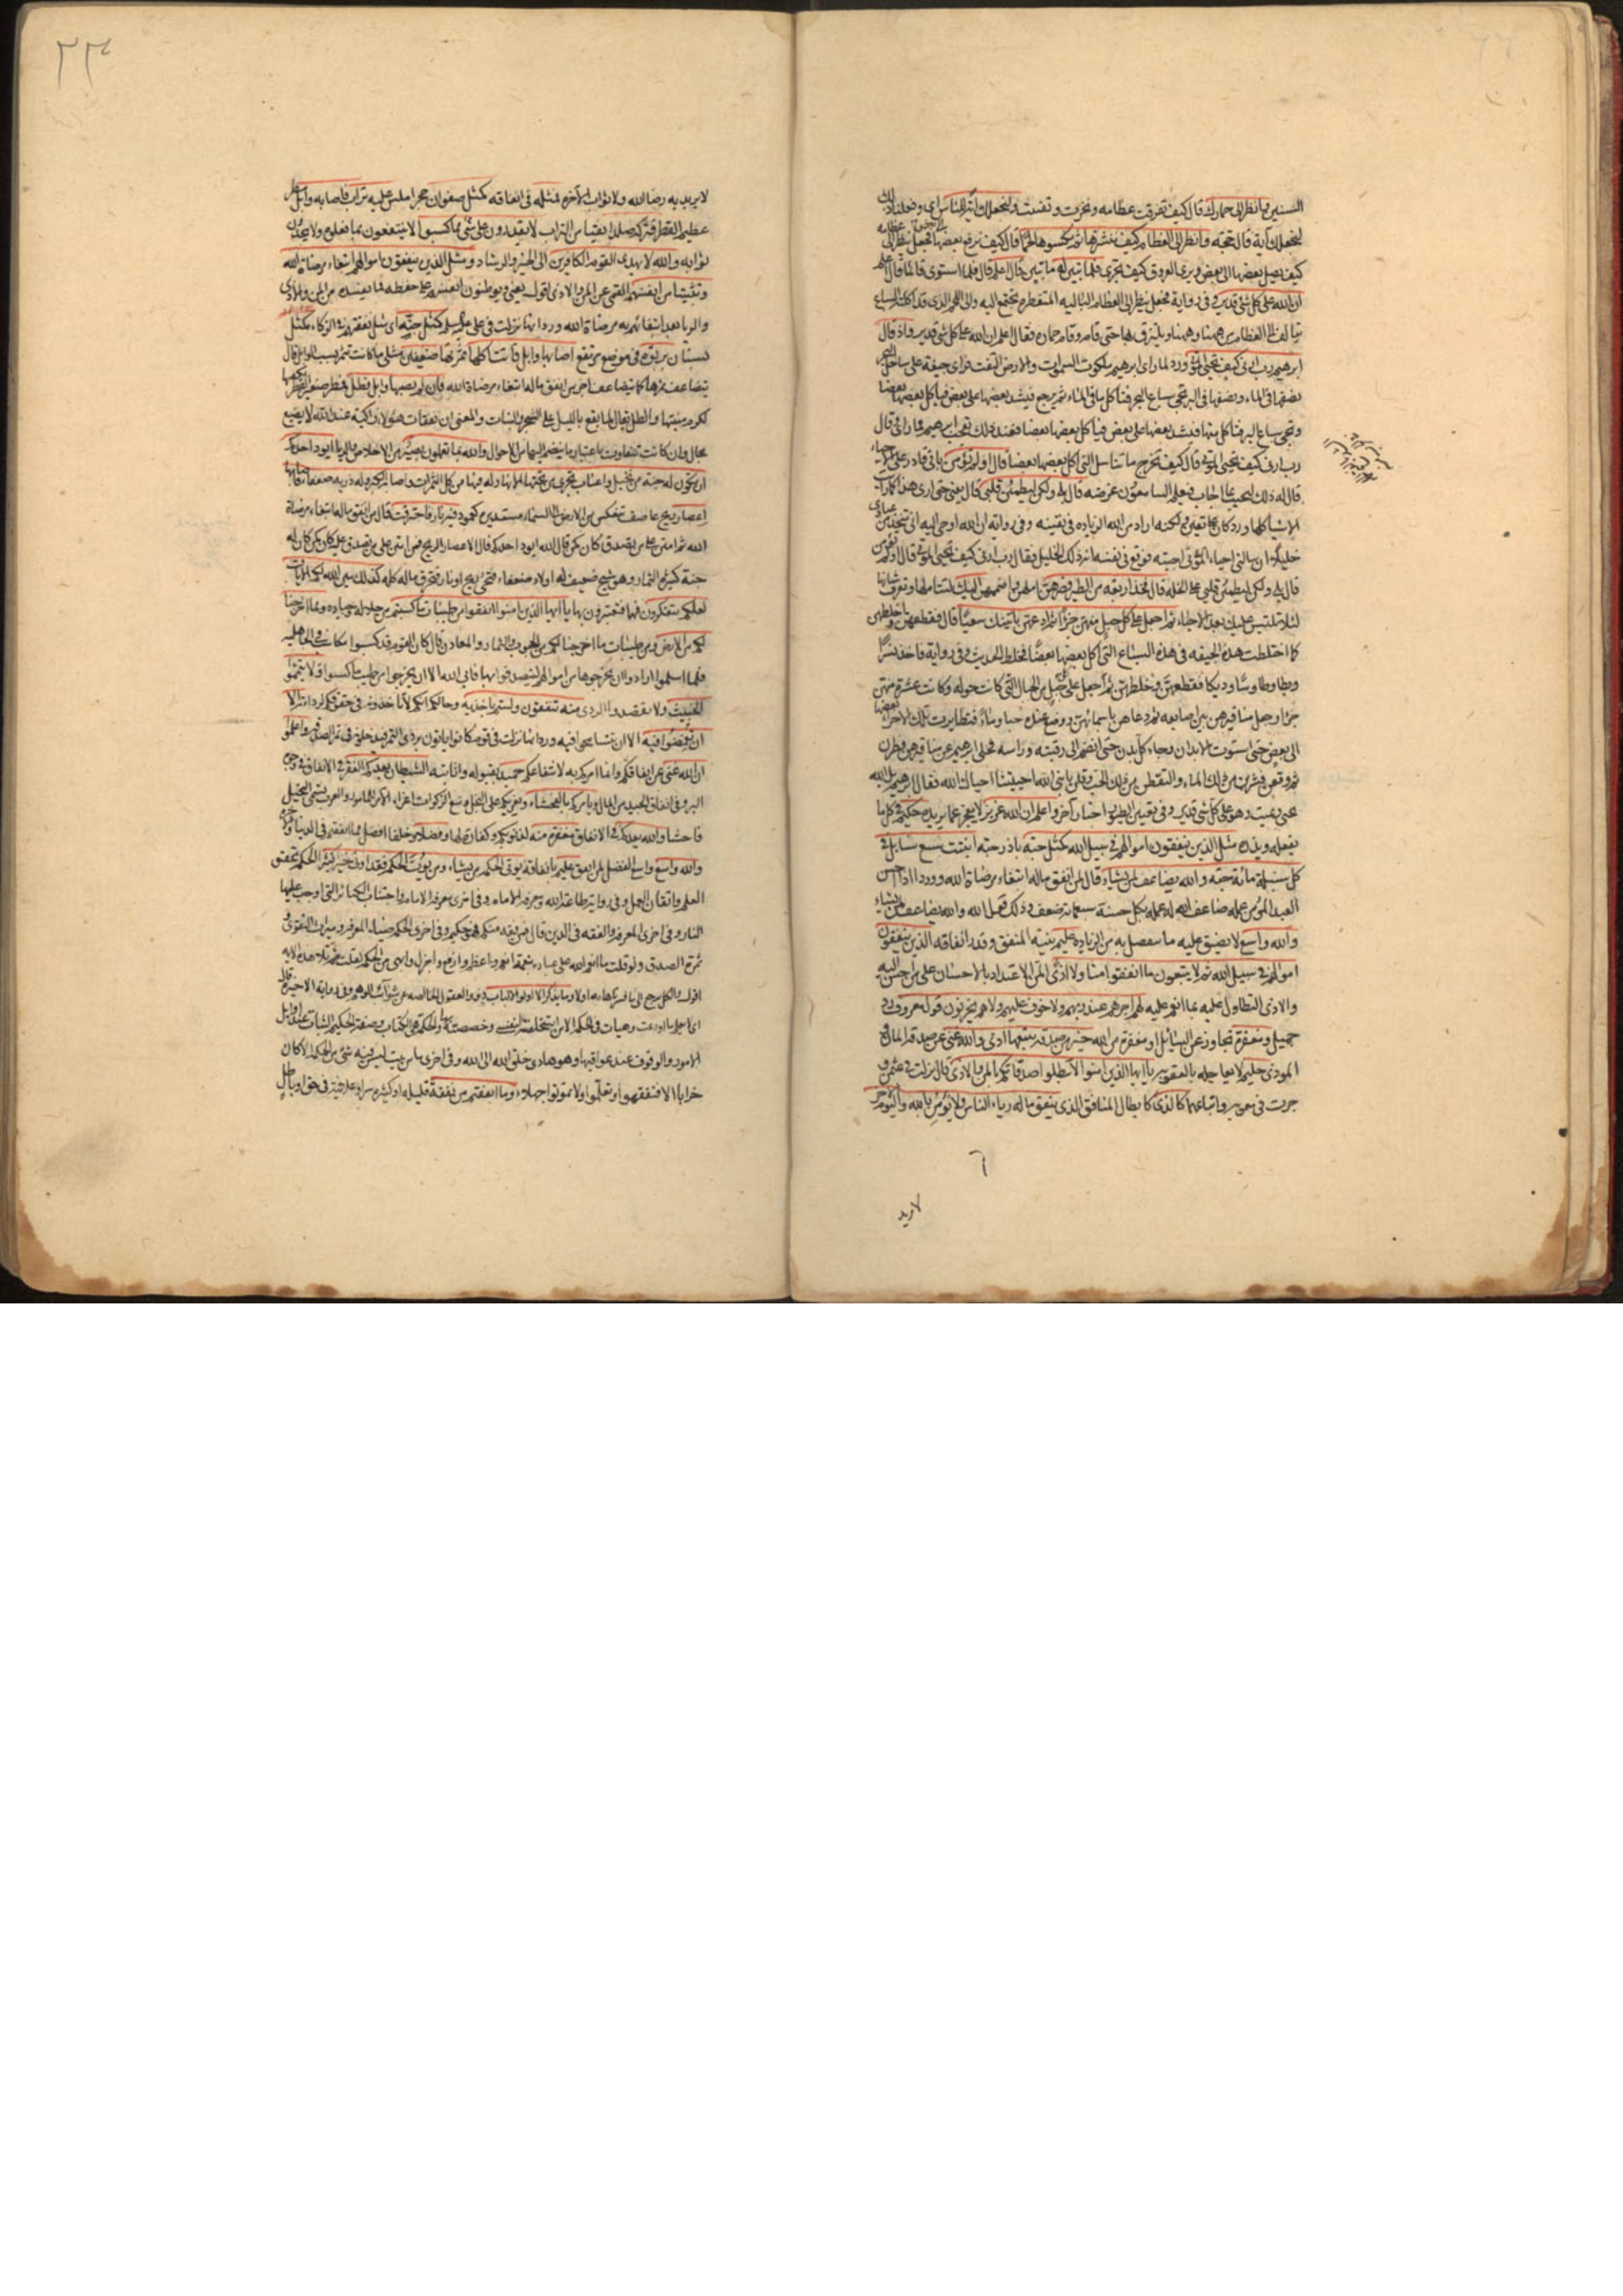 السنين وانظر الى حمارك قال كيف تفرقت عظامه ونخرت وتفتت ولنجعلك آية للناس اي وفعلنا ذلك
لنجعلك آية قال حجة وانظر الى العظام كيف ننشزها ثم نكسوها لحما قال كيف نرفع بعضها فجعل ينظر الى
كيف يصل بعضها الى بعض ويرى العروق كيف تجري فلما تبين له ما تبين قال اعلم قال فلما استوى قائما قال اعلم
ان الله على كل شئ قدير وفي رواية فجعل ينظر الى العظام البالية المتفطرة تجتمع اليه والى اللحم الذي قد اكلته السباع
يتألف الى العظام من ههنا وههنا ويلتزق بها حتى قام وقام حماره فقال اعلم ان الله على كل شئ قدير واذ قال
ابرهيم رب ارني كيف تحيي الموتى ورد لما راى ابرهيم ملكوت السموات والارض التفت فراى جيفة على ساحل البحر
نصفها في الماء ونصفها في البر تجئ سباع البحر فتأكل ما في الماء ثم يرجع فيشد بعضها على بعض فياكل بعضها بعضا
وتجئ سباع البر فتاكل منها فيشد بعضها على بعض فيأكل بعضها بعضا فعند ذلك تعجب ابرهيم مما راى وقال
رب ارني كيف تحيي الموتى قال كيف تخرج ما تناسل التي اكل بعضها بعضا قال اولم تؤمن باني قادر على الاحياء
قال له ذلك ليجيب بما اجاب فيعلم السامعون غرضه قال بلى ولكن ليطمئن قلبي قال يعني حتى ارى هذا كما رايت
الاشياء كلها ورد كان على يقين ولكنه اراد من الله الزيادة في يقينه وفي رواية ان الله اوحى اليه اني متخذ من عبادي
خليلا ان سالني احياء الموتى اجبته فوقع في نفسه انه ذلك الخليل فقال رب ارني كيف تحيي الموتى قال اولم تؤمن
قال بلى ولكن ليطمئن قلبي على الخلة قال فخذ اربعة من الطير فصرهن املهن واضممهن اليك لتتاملها وتعرف شانها
لئلا تلتبس عليك بعد الاحياء ثم اجعل على كل جبل منهن جزءا ثم ادعهن ياتينك سعيا قال فقطعهن واخلطهن
كما اختلطت هذه الجيفة في هذه السباع التي اكل بعضها بعضا فخلط الحديث وفي رواية فاخذ نسرا
وبطا وطاوسا وديكا فقطعهن وخلطهن ثم اجعل على كل جبل من الجبال التي كانت حوله وكانت عشرة منهن
جزءا وجعل مناقيرهن بين اصابعه ثم دعاهن باسمائهن ووضع عنده حبا وماء فتطايرت تلك الاجزاء بعضها
الى بعض حتى استوت الابدان وجاء كل بدن حتى انضم الى رقبته وراسه فخلى ابرهيم عن مناقيرهن فطرن
ثم وقعن فشربن من ذلك الماء والتقطن من ذلك الحب وقلن يا نبي الله احييتنا احياك الله فقال ابرهيم بل الله
يحيي ويميت وهو على كل شئ قدير وفي تعيين الطيور اخبار آخر واعلم ان الله عزيز لا يعجز عما يريده حكيم في كل ما
يفعله ويذره مثل الذين ينفقون اموالهم في سبيل الله كمثل حبة باذر حبة انبتت سبع سنابل في
كل سنبلة مائة حبة والله يضاعف لمن يشاء قال لمن انفق ماله ابتغاء مرضاة الله وورد اذا احسن
العبد المؤمن عمله ضاعف الله له عمله بكل حسنة سبعمائة ضعف وذلك قول الله والله يضاعف لمن يشاء
والله واسع لا يضيق عليه ما يتفضل به من الزيادة عليم بنية المنفق وقدر انفاقه الذين ينفقون
اموالهم في سبيل الله ثم لا يتبعون ما انفقوا منا ولا اذى المن الاعتداد بالاحسان على من احسن اليه
والاذى التطاول عليه بما انعم عليه لهم اجرهم عند ربهم ولا خوف عليهم ولا هم يحزنون قول معروف رد
جميل ومغفرة تجاوز عن السائل او مغفرة من الله خير من صدقة يتبعها اذى والله غني عن صدقة المان و
الموذي حليم لا يعاجله بالعقوبة يا ايها الذين امنوا لا تبطلوا صدقاتكم بالمن والاذى قال نزلت في عثمن و
جرت في معوية واتباعهما كالذي كابطال المنافق الذي ينفق ماله رئاء الناس ولا يؤمن بالله واليوم الآخر
٦
لا يريد
٢٣
لا يريد به رضا الله ولا ثواب الآخرة فمثله في انفاقه كمثل صفوان حجر املس عليه تراب فاصابه وابل مطر
عظيم القطر فتركه صلدا نقيا من التراب لا يقدرون على شئ مما كسبوا لا ينتفعون بما فعلوه ولا يجدون
ثوابه والله لا يهدي القوم الكافرين الى الخير والرشاد ومثل الذين ينفقون اموالهم ابتغاء مرضاة الله
وتثبيتا من انفسهم القمي عن المن والاذى اقول يعني يوطنون انفسهم على حفظه مما يفسده من المن والاذى
والريا بعد ابتغائهم به مرضاة الله وورد انها نزلت في علي كمثل جنة اي مثل نفقتهم في الزكاء كمثل
بستان بربوة في موضع مرتفع اصابها وابل فاتت اكلها ثمرتها ضعفين مثلي ما كانت تثمر بسبب الوابل قال
يتضاعف ثمرها كما يتضاعف اجر من انفق ماله ابتغاء مرضاة الله فان لم يصبها وابل فطل فمطر صغير القطر يكفيها
لكرم منبتها والطل يقال لما يقع بالليل على الشجر والنبات والمعنى ان نفقات هؤلاء زاكية عند الله لا يضيع
بحال وان كانت تتفاوت باعتبار ما ينضم اليها من الاحوال والله بما تعملون بصير من الاخلاص والريا ايود احدكم
ان تكون له جنة من نخيل واعناب تجري من تحتها الانهار له فيها من كل الثمرات واصابه الكبر وله ذرية ضعفاء فاصابها
اعصار ريح عاصف تنعكس من الارض الى السماء مستديرة كعمود فيه نار فاحترقت قال من انفق ماله ابتغاء مرضاة
الله ثم امتن على من تصدق كان كمن قال الله ايود احدكم قال الاعصار الريح فمن امتن على من تصدق عليه كان كمن كان له
جنة كثيرة الثمار وهو شيخ ضعيف له اولاد ضعفاء فتجئ ريح او نار فتحرق ماله كله كذلك يبين الله لكم الايات
لعلكم تتفكرون فيها فتعتبرون بها يا ايها الذين امنوا انفقوا من طيبات ما كسبتم من حلاله وجياده ومما اخرجنا
لكم من الارض ومن طيبات ما اخرجنا لكم من الحبوب والثمار والمعادن قال كان القوم قد كسبوا مكاسب في الجاهلية
فلما اسلموا ارادوا ان يخرجوها من اموالهم ليتصدقوا بها فابى الله الا ان يخرجوا من طيب ما كسبوا ولا تيمموا
الخبيث ولا تقصدوا الردي منه تنفقون ولستم باخذيه وحالكم انكم لا تاخذونه في حقوقكم لرداءته الا
ان تغمضوا فيه الا ان تتسامحوا فيه ورد انها نزلت في قوم كانوا ياتون بردى التمر فيدخلونه في تمر الصدقة واعلموا
ان الله غني عن انفاقكم وانما امركم به لانتفاعكم حميد بقبوله واثابته الشيطان يعدكم الفقر في الانفاق في وجوه
البر وفي انفاق الجيد من المال ويامركم بالفحشاء ويغريكم على البخل ومنع الزكوات اغراء الآمر للمامور والعرب يسمى البخيل
فاحشا والله يعدكم في الانفاق مغفرة منه لذنوبكم وكفارة لها وفضلا وخلفا افضل مما انفقتم في الدنيا والاخرة
والله واسع واسع الفضل لمن انفق عليم بانفاقه يؤتي الحكمة من يشاء ومن يؤت الحكمة فقد اوتي خيرا كثيرا الحكمة تحقيق
العلم واتقان العمل وفي رواية طاعة الله ومعرفة الامام وفي اخرى معرفة الامام واجتناب الكبائر التي اوجب عليها
النار وفي اخرى المعرفة والفقه في الدين قال فمن فقه منكم فهو حكيم وفي اخرى الحكمة ضياء المعرفة وميراث التقوى و
ثمرة الصدق ولو قلت ما انعم الله على عباده بنعمة انعم واعظم وارفع واجزل وابهى من الحكمة لقلت ثم تلا هذه الاية
اقول والكل يرجع الى وما يذكر الا اولوا الالباب ذوو العقول الخالصة عن شوائب الوهم وفي رواية الاخيرة قال
اي لا يعلم ما اودعت وهيأت في الحكمة الا من استخلصته لنفسي وخصصته بها والحكمة هي الكتاب وصفة الحكيم الثبات عند اوائل
الامور والوقوف عند عواقبها وهو هادي خلق الله الى الله وفي اخرى ما من بيت ليس فيه شئ من الحكمة الا كان
خرابا الا فتفقهوا وتعلموا ولا تموتوا جهلاء وما انفقتم من نفقة قليلة او كثيرة سرا وعلانية في حق او باطل